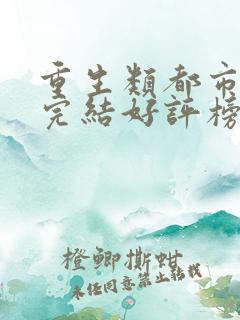 重生類都市
完結好評榜
橙鯽撕蚶
未任同意禁止轉載